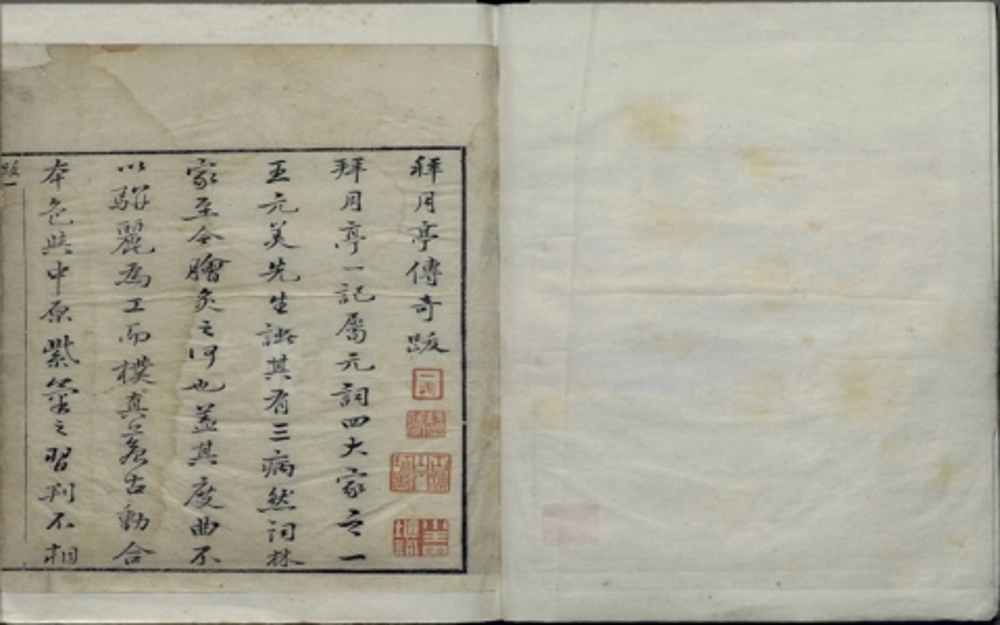 拜月亭傳奇跋
拜月亭一記屬元詞四大家之一
王元美先生訾其有三病然詞林
家至今膾炙之何也蓋其度曲不
以駢麗為工而樸真蒼古動合
本色與中原紫氣之習判不相
跋一